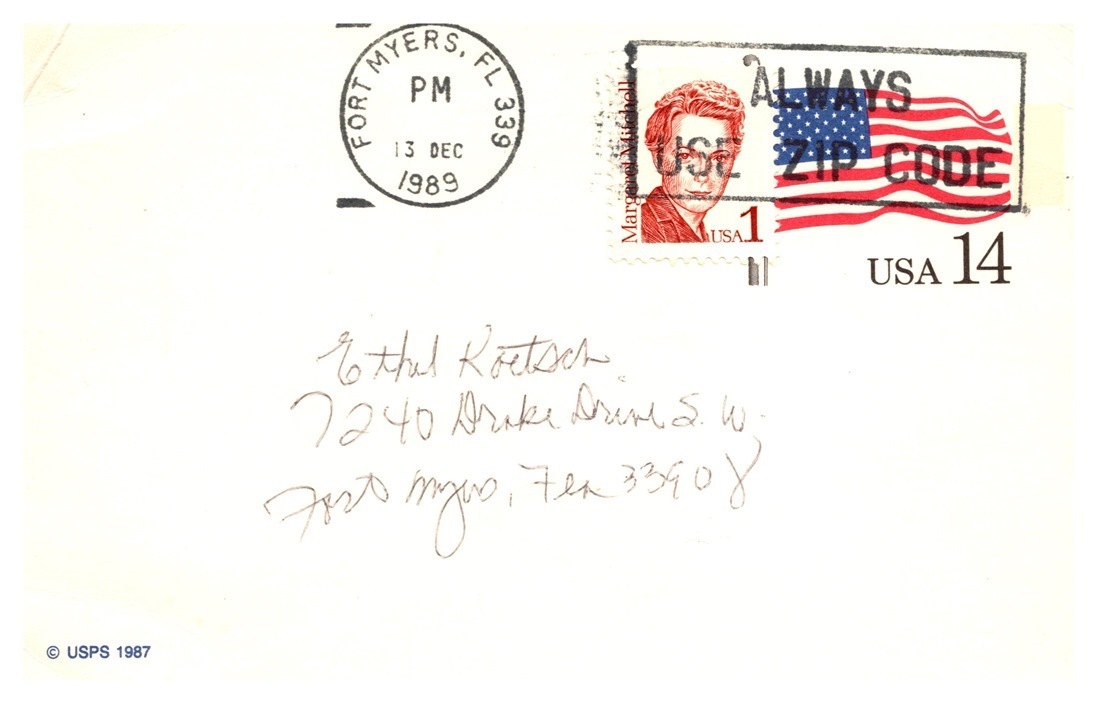 FORT MYERS, FL 339
PM
13 DEC
1989
ALWAYS
USE ZIP CODE
Margaret Mitchell
USA 1
USA 14
Ethel Koetsch
7240 Drake Drive S. W.
Fort Myers, Fla 33908
© USPS 1987